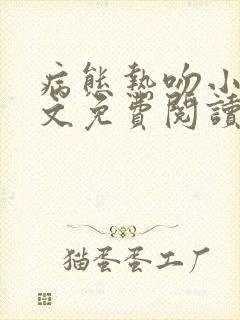 病態熱吻小
文免費閱讀
猫蛋蛋工厂